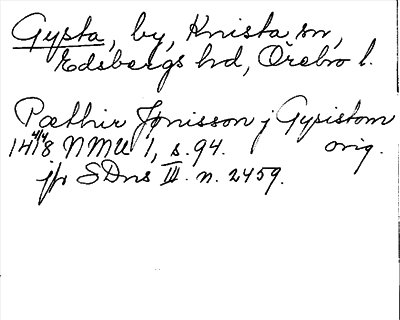 Gysta, by, Knista sn,
Edsbergs hd, Örebro l.
Pæthir Jönisson j Gysistom
14 4/4 18 NMU 1, s. 94. orig.
jfr SDns III. n. 2459.